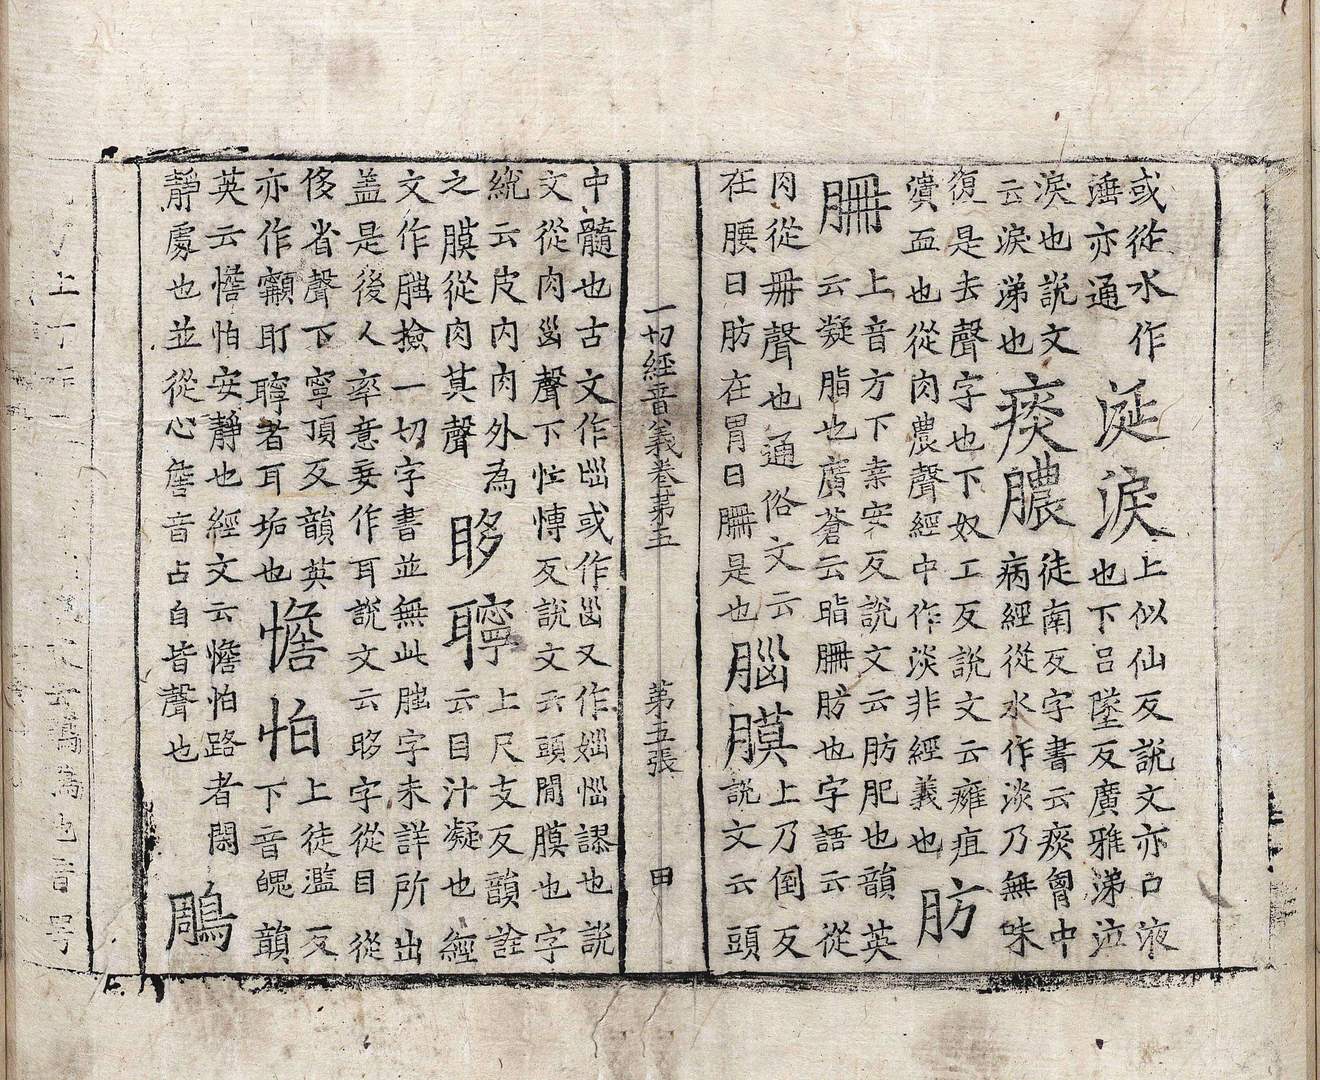 或從水作涎淚上似仙反說文亦口液
唾亦通涎淚也下呂墜反廣雅涕泣
淚也說文痰膿徒南反字書云痰𦚾中
云淚涕也痰膿病經從水作淡乃無味
復是去聲字也下奴工反說文云癰疽
潰血也從肉農聲經中作淡非經義也肪
𦙱上音方下桒安反說文云肪肥也韻英
云凝脂也廣蒼云脂𦙱肪也字語云從
肉從冊聲也通俗文云腦膜上乃倒反
在腰曰肪在胃曰𦙱是也腦膜說文云頭
一切經音義卷第五 第五張 甲
中髓也古文作𡿺或作𡿺又作㛴惱謬也說
文從肉𡿺聲下忙慱反說文云頭閒膜也字
統云皮內肉外為眵聹上尺支反韻詮
之膜從肉莫聲眵聹云目汁凝也經
文作𦞤撿一切字書並無此𦞤字未詳所出
盖是後人率意妄作耳說文云眵字從目從
侈省聲下寧頂反韻英憺怕上徒濫反
亦作𩕳耵聹者耳垢也憺怕下音魄韻
英云憺怕安靜也經文云憺怕路者閑
靜處也並從心詹音占自皆聲也鵰